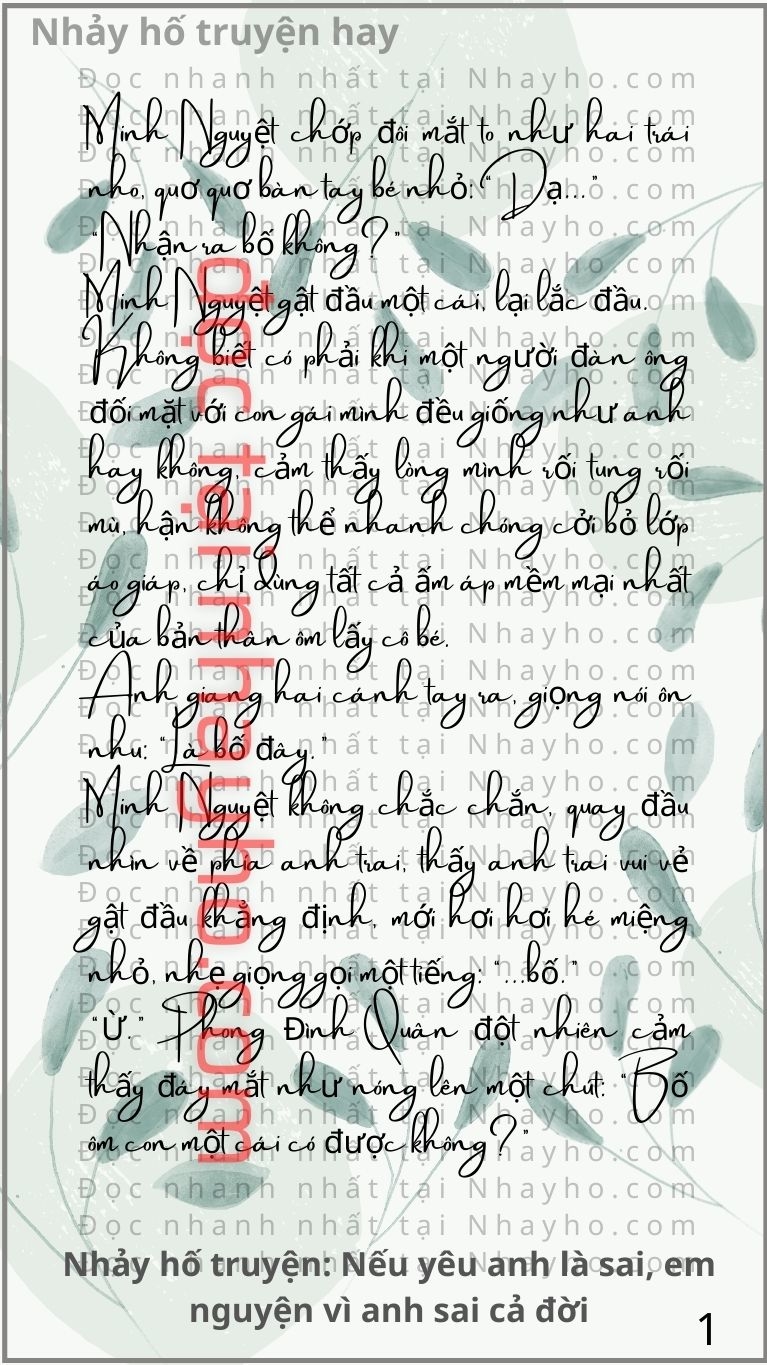 Nhảy hố truyện hay
Đọc nhanh nhất tại Nhayho.com
Minh Nguyệt chớp đôi mắt to như hai trái
nho, quơ quơ bàn tay bé nhỏ: “Dạ...”
“Nhận ra bố không?”
Minh Nguyệt gật đầu một cái, lại lắc đầu.
Không biết có phải khi một người đàn ông
đối mặt với con gái mình đều giống như anh
hay không, cảm thấy lòng mình rối tung rối
mù, hận không thể nhanh chóng cởi bỏ lớp
áo giáp, chỉ dùng tất cả ấm áp mềm mại nhất
của bản thân ôm lấy cô bé.
Anh giang hai cánh tay ra, giọng nói ôn
nhu: “Là bố đây.”
Minh Nguyệt không chắc chắn, quay đầu
nhìn về phía anh trai, thấy anh trai vui vẻ
gật đầu khẳng định, mới hơi hơi hé miệng
nhỏ, nhẹ giọng gọi một tiếng: “...bố.”
“Ừ.” Phong Đình Quân đột nhiên cảm
thấy đáy mắt như nóng lên một chút: “Bố
ôm con một cái có được không?”
đọc tại nhayho.com
Nhảy hố truyện: Nếu yêu anh là sai, em
nguyện vì anh sai cả đời
1